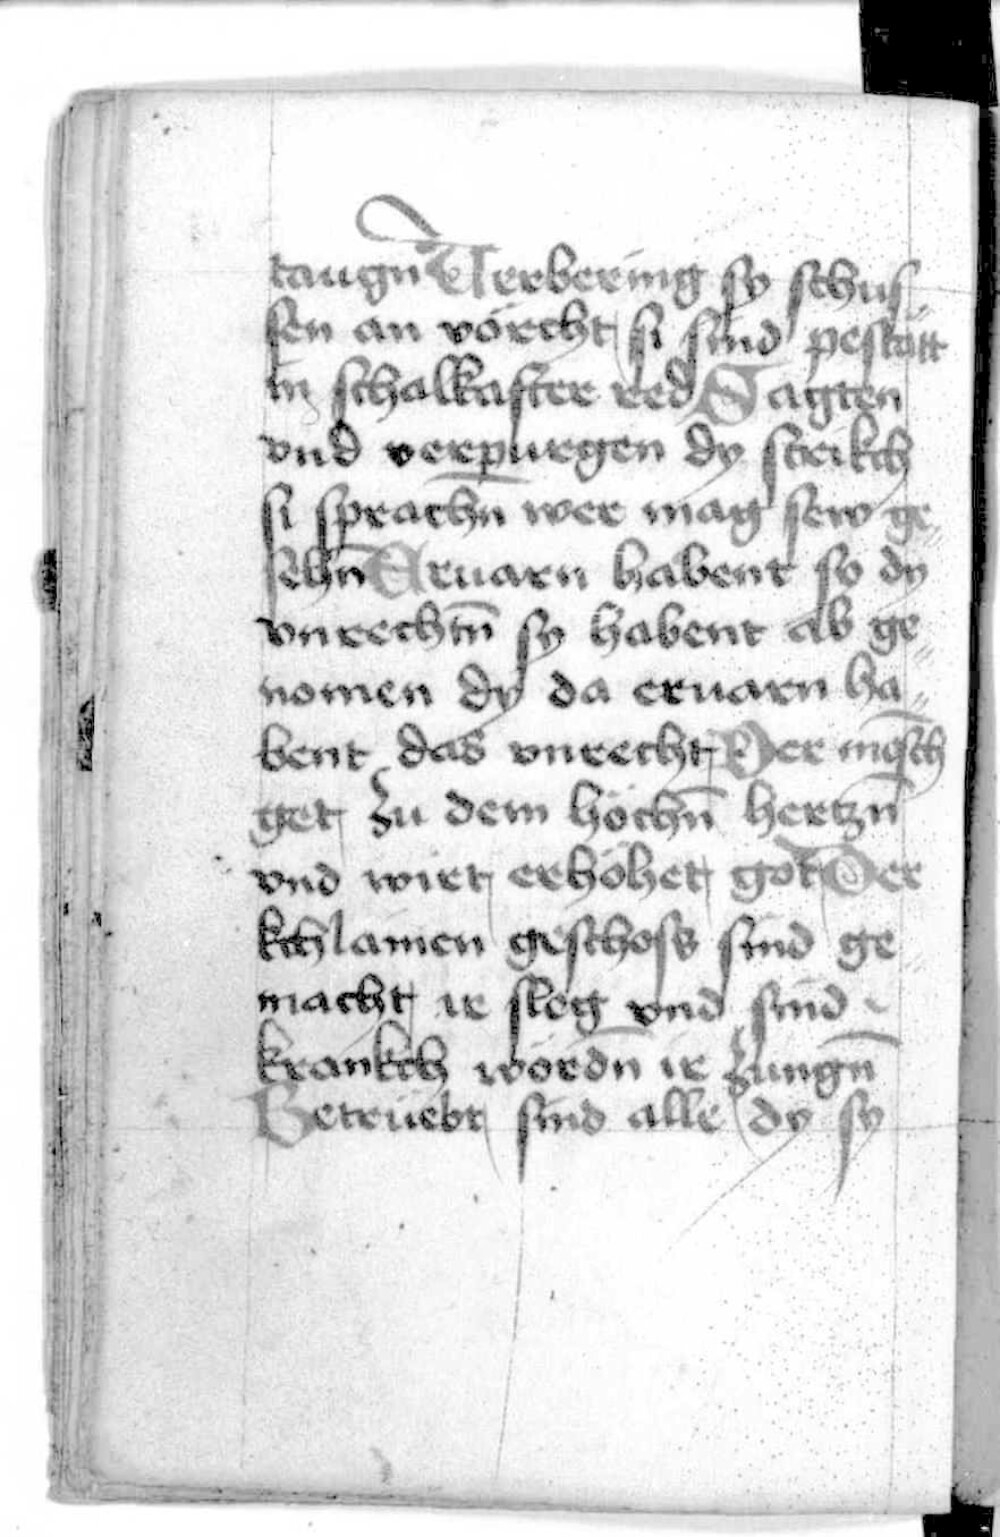 taugn̄ Uerbering sy schus„
sen an vörcht si sind pestätt
in schalkafter red Sagten
vnd verpurgen dy strikch
si sprachn̄ wer mag sew ge„
sehn̄ Eruarn habent so dy
vnrechtn̄ sy habent ab ge„
nomen dy da eruarn ha„
bent das vnrecht Der mēsch
get zu dem höchn̄ hertzn̄
vnd wirt erhöhet got Der
kchlainen geschoss sind ge
macht ir sleg vnd sind
krankch wordn̄ ir zungn̄
Betrüebt sind alle dy sy